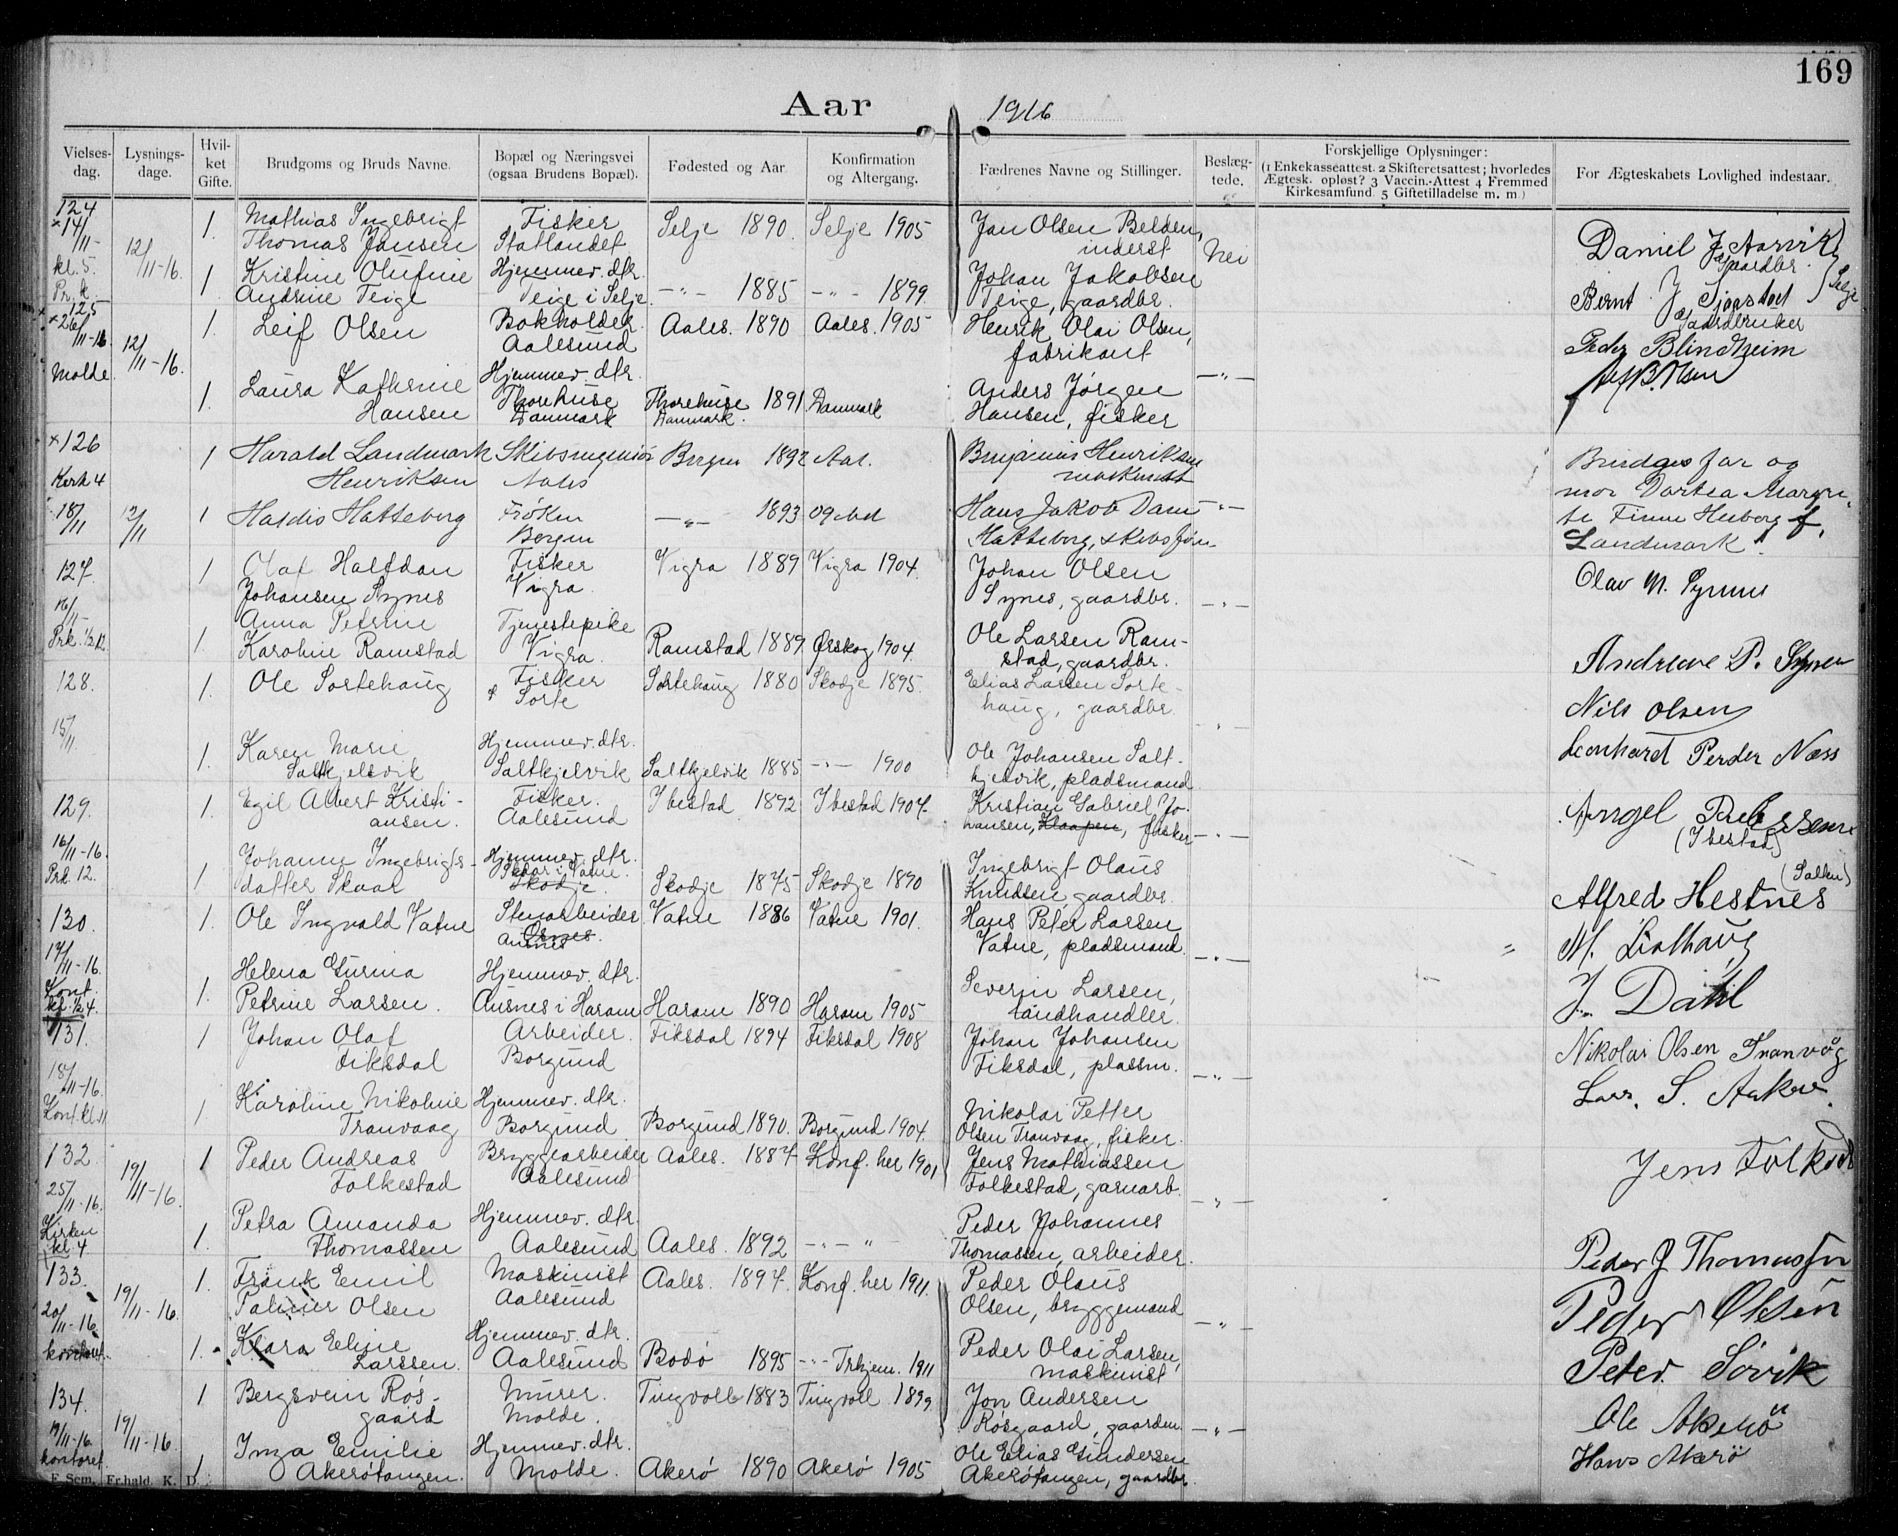 169
Aar 1916
Vielses-dag.
Lysnings-dage.
Hvil-ket Gifte.
Brudgoms og Bruds Navne.
Bopæl og Næringsvei (ogsaa Brudens Bopæl).
Fødested og Aar.
Konfirmation og Altergang.
Fædrenes Navne og Stillinger.
Beslæg-tede.
Forskjellige Oplysninger: (1 Enkekasseattest. 2 Skifteretsattest; hvorledes Ægtesk. opløst? 3 Vaccin.-Attest 4 Fremmed Kirkesamfund. 5 Giftetilladelse m. m.)
For Ægteskabets Lovlighed indestaar.
124 Mathias Ingebrigt Fisker Selje 1890. Selje 1905 Jan Olsen Belden,
14/11- 12/11-16. 1. Thomas Jansen Statlandet inderst Nei Daniel J Aarvik
kl. 5. Kristine Olufine Hjemmev. dtr. Johan Jakobsen Gaardbr.
Pr. k. 1 Andrine Teige Teige i Selje. -"- 1885 -"- 1899. Teige, gaardbr. Bernt J Sjaastad Selje
125 Gaardbruker
26/11-16. 12/11-16. 1. Leif Olsen Bokholder Aalesund Aales. 1890 Aales. 1905 Henrik Olai Olsen, fabrikant Peder Blindheim
Molde. Laura Kathrine Hjemmev. dtr. -"-
1. Hansen Thorehuse Danmark Thorehuse Danmark. 1891 Danmark Anders Jørgen Hansen, fisker
126 1 Harald Landmark Skibsingeniør Bergen 1892 Aal. Benjamin Henriksen Brudges far og
Kirk 4 Henriksen Aales maskinist mor Dortea Margre-
18/11 12/11 1 Haldis Hatteberg Frøken -"- 1893 og sted Hans Jakob Dam -"- te Finne Heiberg f.
Bergen Hatteberg, skibsfør. Landmark.
127. 1 Olaf Halfdan Fisker Vigra 1889 Vigra 1904. Johan Olsen
Johansen Synes Vigra. Synes, gaardbr. -"- Olav M. Synnes
16/11- Anna Petrine Tjenestepike Ole Larsen Ram-
Prk. 1/2 12. 1. Karoline Ramstad Vigra. Ramstad 1889 Ørskog 1904. stad, gaardbr. Andreas P. Synes
128. 1. Ole Sortehaug Fisker Sorte Sortehaug 1880 Skodje 1895. Elias Larsen Sorte-
haug, gaardbr. -"- Nils Olsen
15/11. Karen Marie Hjemmev. dtr. Ole Johansen Salt-
1. Saltkjelsvik Saltkjelvik Saltkjelvik 1885 -"- 1900 kjelvik, pladsmand Leonhard Peder Næss
129. 1. Egil Albert Kristi- Fisker. Ibestad 1892 Ibestad 1907. Kristian Gabriel Jo-
ansen. Aalesund hansen, fisker -"- (Ibestad)
16/11-16. Johanne Ingebrigts- Hjemmev. dtr. Ingebrigt Olaus
Prk. 12. 1. datter Skaar Skaar i Vatne. Skodje. Skodje 1875 Skodje 1890 Knudsen gaardbr. Alfred Hestnes
130. 1. Ole Ingvald Vatne Stenarbeider Vatne 1886 Vatne 1901. Hans Peter Larsen
17/11-16. Ausnes Vatne, pladsmand. -"-
Kont. Helena Gurina Hjemmev. dtr. Severin Larsen,
kl. 1/2 4. 1. Petrine Larsen. Ausnes i Haram Haram 1890 Haram 1905 landhandler. J. Dahl
131. 1 Johan Olaf Arbeider. Fiksdal 1894 Fiksdal 1908 Johan Johansen
Fiksdal Borgund Fiksdal, plassm. -"- Nikolai Olsen Tranvåg
18/11-16. Karoline Nikoline Hjemmev. dtr. Nikolai Petter
Kont. kl. 11 1. Tranvaag Borgund Borgund 1890. Borgund 1904. Olsen Tranvaag, fisker.
132. 19/11-16. 1 Peder Andreas Bryggearbeider Aales. 1887 Konf. her 1901 Jens Mathiassen
25/11-16. Folkestad Aalesund Folkestad, garnarb. -"- Jens Folkestad
Kirken Petra Amanda Hjemmev. dtr. Peder Johannes
kl. 4 1. Thomassen Aalesund Aales. 1892 -"- Thomassen, arbeider. Peder J Thomassen
133. 19/11-16. 1. Frank Emil Maskinist Aales. 1894. Konf. her 1911. Peder Olaus
20/11-16. Palmer Olsen Aalesund Olsen, bryggemand -"- Peder Olsen
kontoret. 1. Klara Eline Hjemmev. dtr. Peder Olai Larsen,
Larssen. Aalesund Bodø 1895 -"- Trhjem. 1911 maskinist Peter Søvik
134. 19/11-16. 1 Bergsvein Røs- Murer. Tingvoll 1883 Tingvoll 1899 Jon Andersen
19/11-16. gaard Molde. Røsgaard, gaardm. -"- Ole Akerø
kontoret. 1 Inga Emilie Hjemmev. dtr. Ole Elias Gundersen
Akerøtangen. Molde. Akerø 1890 Akerø 1905 Akerøtangen, gaardbr. Hans Akerø
F. Sem, Fr.hald. K. D.